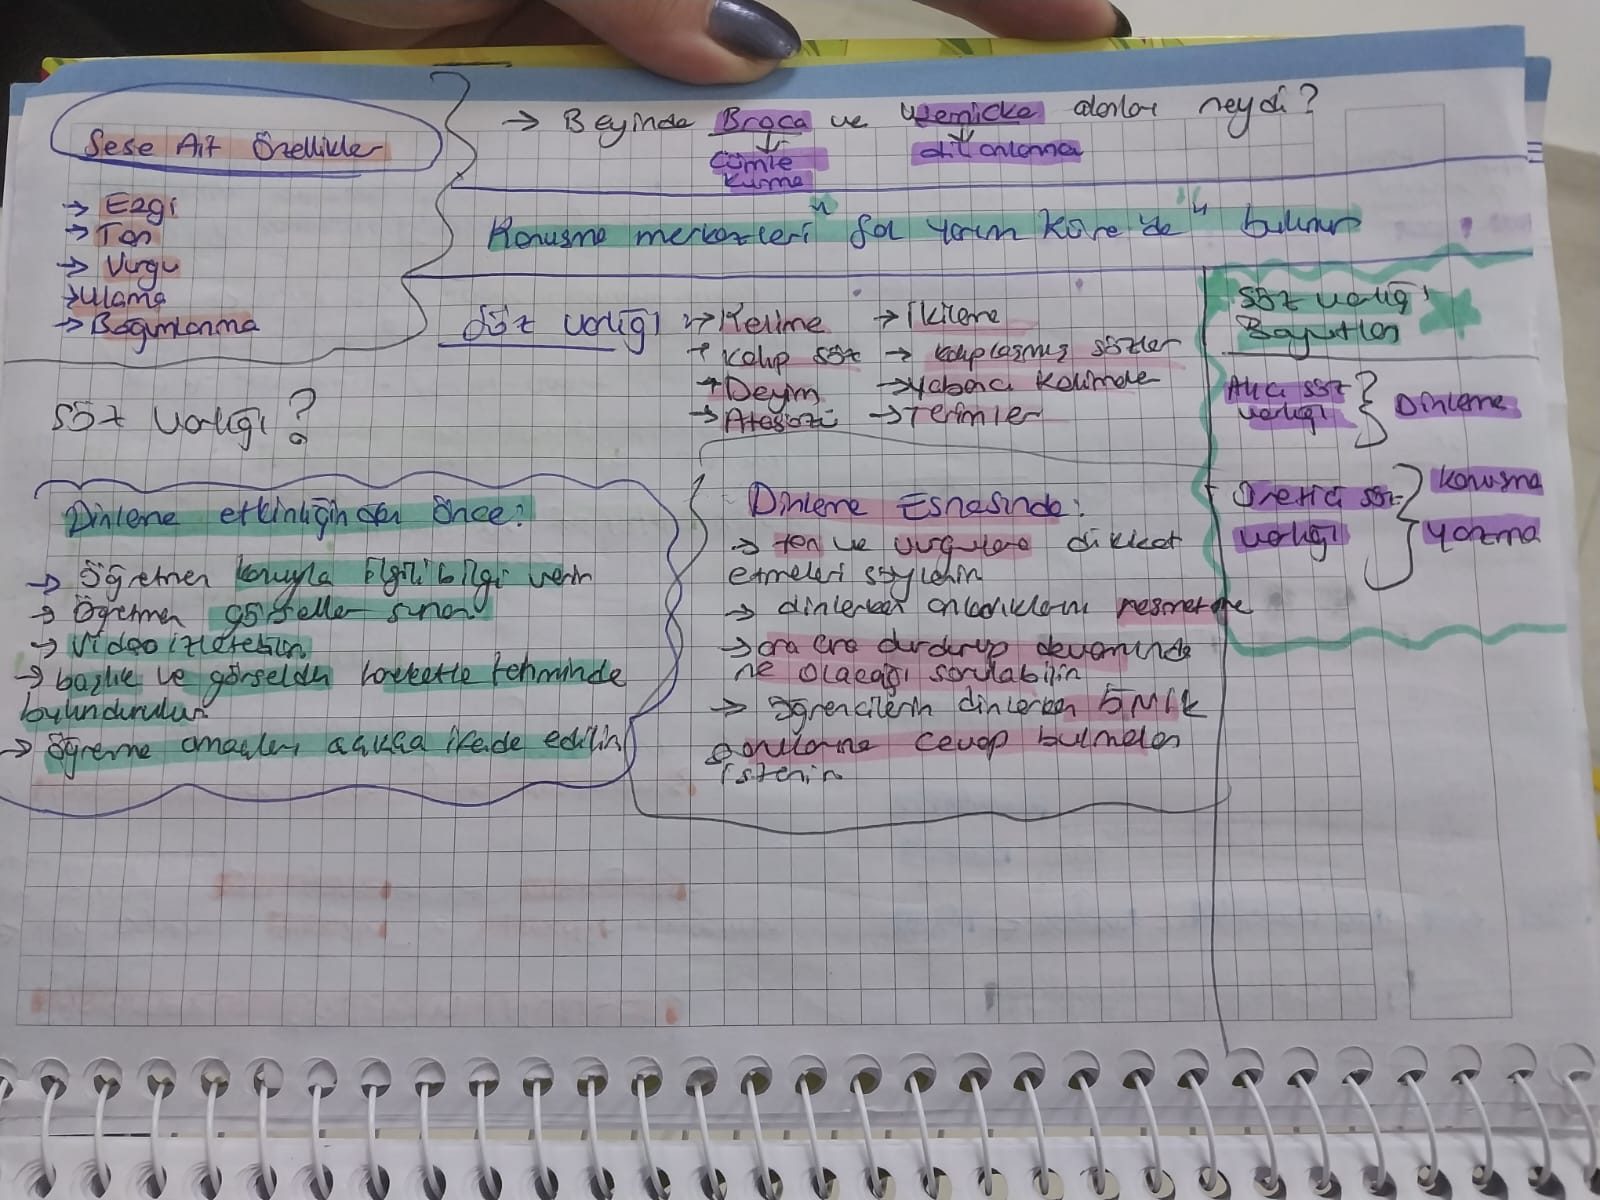 Sese Ait Özellikler
→ Ezgi
→ Ton
→ Vurgu
→ Ulama
→ Boğumlanma
→ Beyinde Broca ve Wernicke alanları neydi?
Cümle
kurma
dili anlama
Konuşma merkezleri "Sol yarım küre'de" bulunur
Söz varlığı → Kelime → İkileme
→ Kalıp söz → kalıplaşmış sözler
→ Deyim → Yabancı kelimeler
→ Atasözü → Terimler
Söz varlığı
Boyutları
Alıcı söz
varlığı
Dinleme
Üretici söz
varlığı
Konuşma
yazma
Söz varlığı?
Dinleme etkinliğinden önce:
→ Öğretmen konuyla ilgili bilgi verir
→ Öğretmen görseller sunar
→ Video izletebilir
→ başlık ve görselden hareketle tahminde
bulundurulur
→ Öğrenme amaçları açıkça ifade edilir
Dinleme Esnasında:
→ ton ve vurgulara dikkat
etmeleri söylenir
→ dinlerken anladıklarını resmetme
→ ara ara durdurup devamında
ne olacağı sorulabilir
→ öğrencilerin dinlerken 5N1K
sorularına cevap bulmaları
istenir